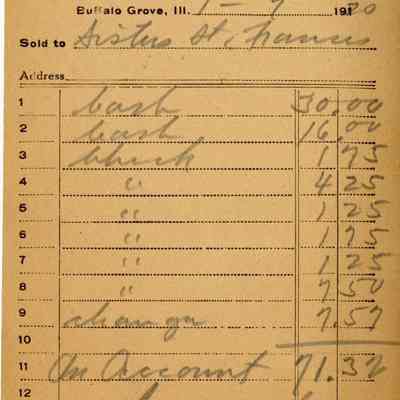 Buffalo Grove, Ill. 1 - 9 1920
Sold to Sisters St. Francis
Address
1 Cash 30.00
2 Cash 16.00
3 Check 1 75
4 " 4 25
5 " 1 25
6 " 1 75
7 " 1 25
8 " 7 50
9 change 7.57
10
11 On Account 71.32
12